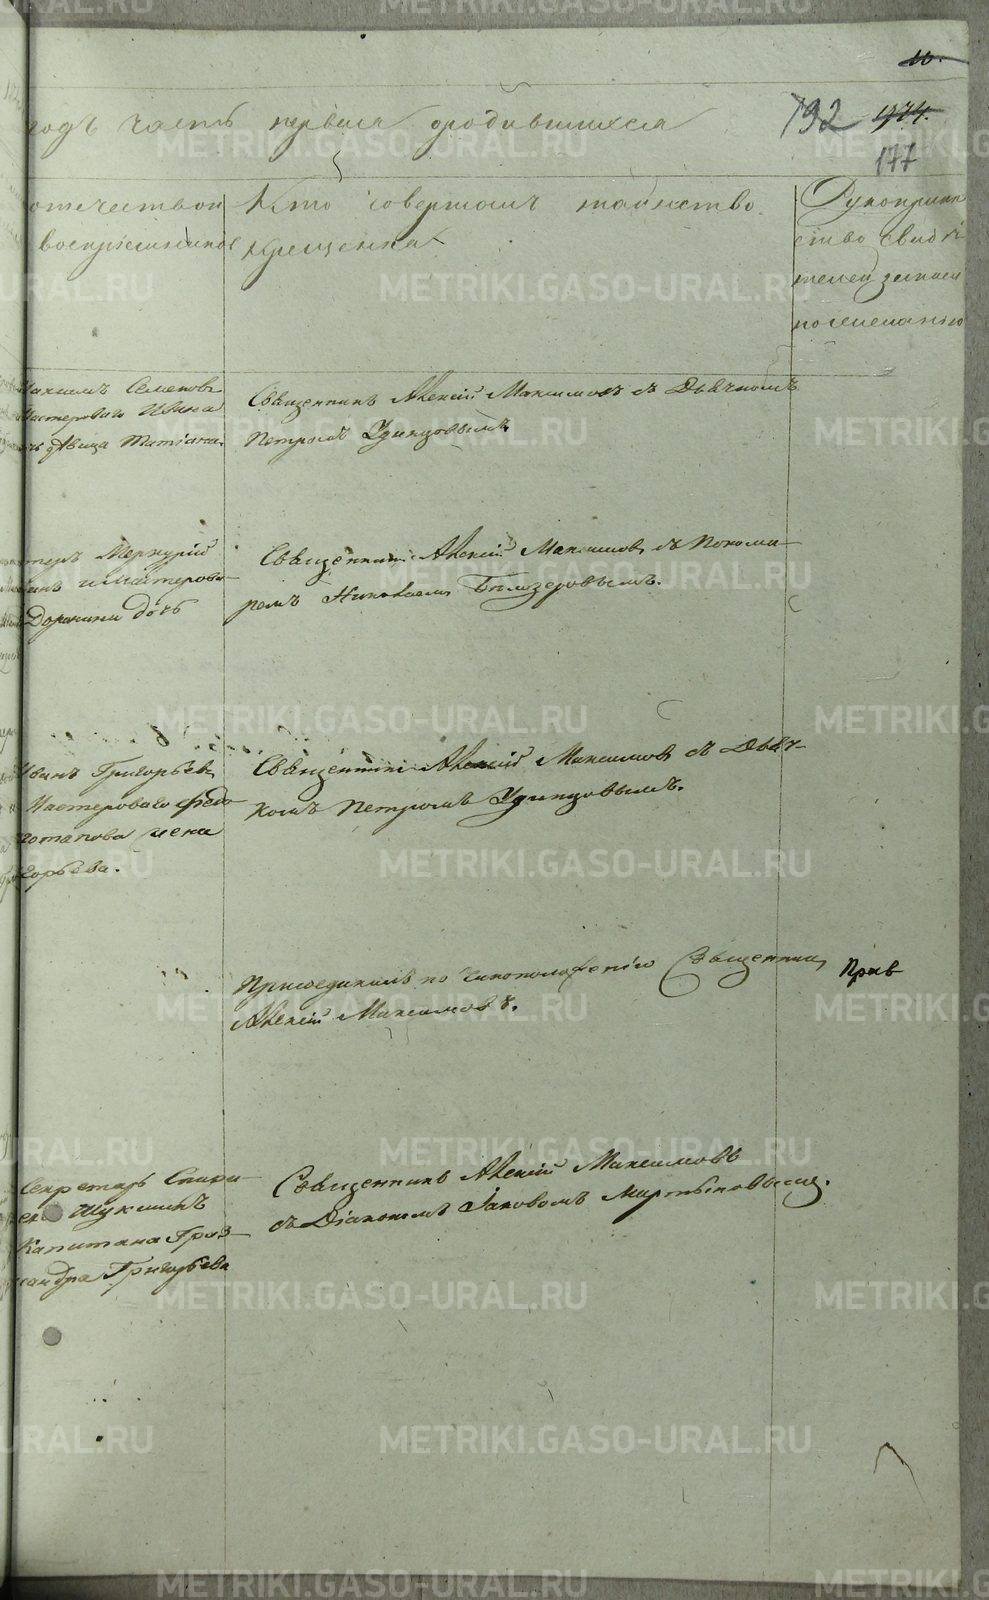 10.
годъ часть первая о родившихся
192 974.
177
отчество и
воспрiемниковъ
Кто совершалъ таинство
крещенiя
Рукоприкла
ство свидѣ
телей записи
по желанiю
Семеновъ
Мастероваго Ивана
дѣвица Татiана.
Священникъ Алексiй Максимовъ съ Дьячкомъ
Петромъ Удинцовымъ.
Меркурiй
и мастерова
Дорофѣи дочь
Священникъ Алексiй Максимовъ съ Понома
ремъ Николаемъ Бѣлозеровымъ.
Иванъ Григорьевъ
Мастероваго Ѳедо
Потапова жена
Священникъ Алексiй Максимовъ съ Дьяч-
комъ Петромъ Удинцовымъ.
Присоединилъ по чиноположенiю Священникъ
Алексiй Максимовъ.
Секретарь
Шукшинъ
Капитана
Григорьева
Священникъ Алексiй Максимовъ
съ Дiакономъ Iаковомъ Мартыновымъ.
METRIKI.GASO-URAL.RU